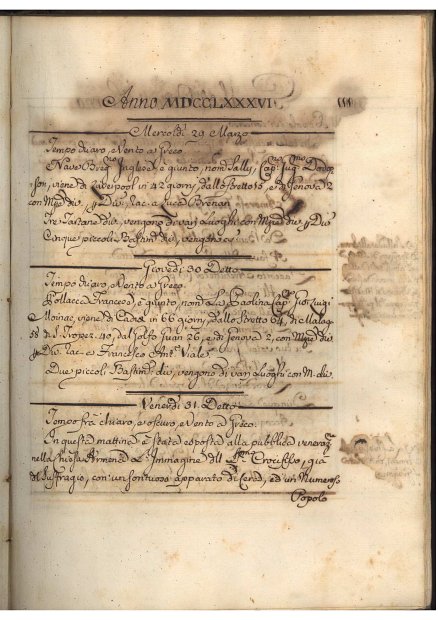 Anno MDCCLXXXVI
Mercoldì 29 Marzo
Tempo chiaro, e Vento a Greco
Nave Inglese, è giunto, nom.ta Sally, Cap.
son, viene di Liverpool in 42 giorni, dallo Stretto 15, e di Genova 2
con Mgie div. p Div. Rac. a Luca Brenan
Tre Tartane div., vengono di varj Luoghi con Mgie div. p Div.
Cinque piccoli Bastim.ti div., vengono
Giovedì 30 Detto
Tempo chiaro, e Vento a Greco
Pollacca Francese, è giunto, nom.ta La Paolina, Cap.
Moinac, viene di Cadice in 66 giorni, dallo Stretto 64, di Malaga
di S. Tropez 40, dal Golfo Juan 26, e di Genova 2, con Mgie div.
p Div. Rac. a Francesco Ant.o Viale
Due piccoli Bastim.ti div., vengono di varj Luoghi con M. div.
Venerdì 31 Detto
Tempo frà chiaro, e oscuro, e Vento a Greco
In questa mattina è stata esposta alla pubblica veneraz.
nella Chiesa Armena Immagine del Crocifisso, già
del Suffragio, con un sontuoso apparato di Cera, ed un Numeroso
Popolo